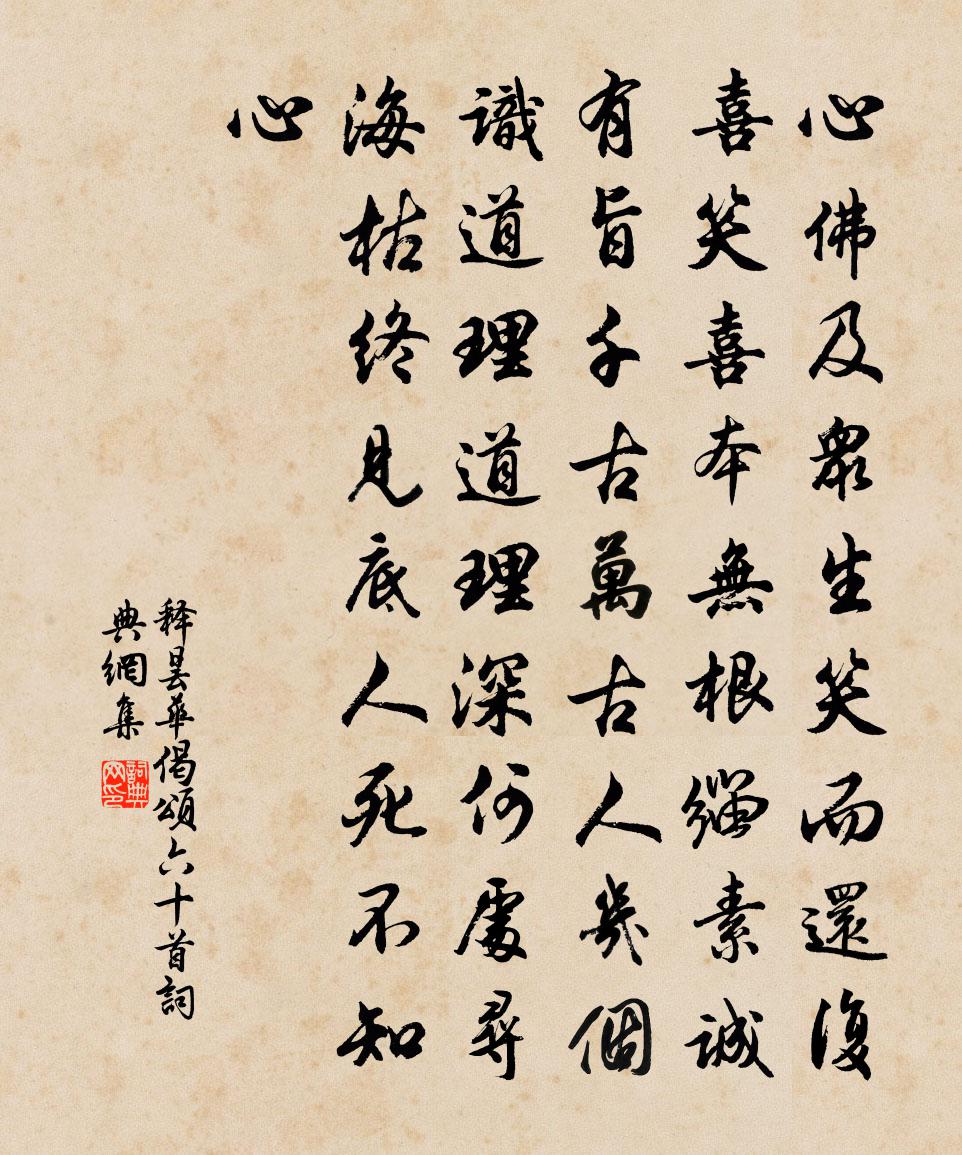 心佛及眾生笑而還復
喜笑喜本無根緇素誠
有旨千古萬古人幾個
識道理道理深何處尋
海枯終見底人死不知
心
释曇華偈頌六十首詞
典網集
詞典
网印